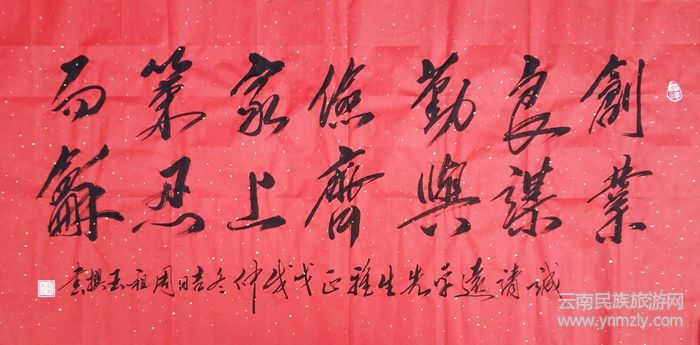 創業
良謀
勤與
儉齊
家上
策忍
而龢
誠請遠平先生雅正戊戌仲冬吉日周祖玉撰書
云南民族旅游网
www.ynmzly.com